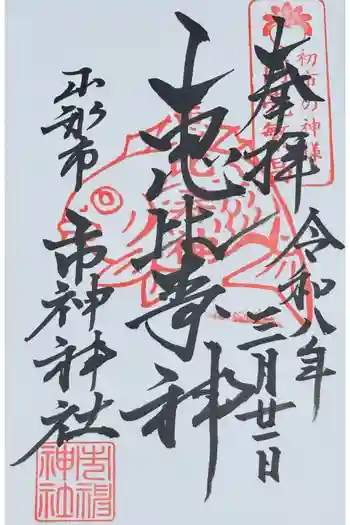 奉拝
初市の神様
令和八年
三月廿一日
恵比寿神
山形市
市神神社
市神
神社